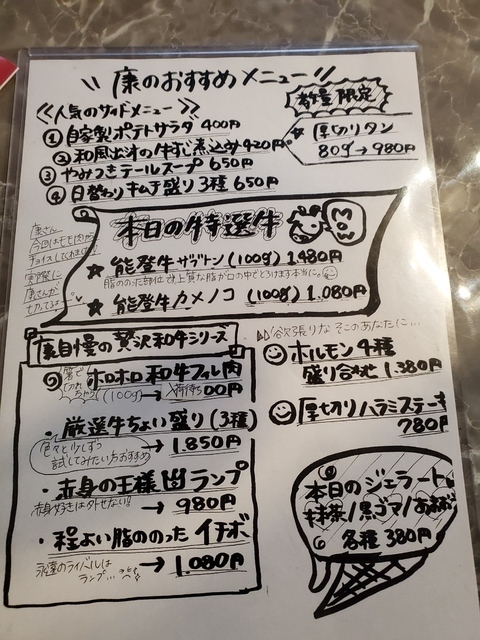 康のおすすめメニュー
≪人気のサイドメニュー≫
① 自家製ポテトサラダ 400円
② 和風出汁の牛すじ煮込み 420円
③ やみつきテールスープ 650円
④ 日替わりキムチ盛り3種 650円
数量限定
★ 厚切りタン
80g→980円
本日の特選牛
MOW
★ 能登牛ザブトン(100g) 1,480円
脂ののった部位で上質な脂が口の中でとろけます本当に。
★ 能登牛カメノコ(100g) 1,080円
康さん
今回はモモ肉から
チョイスしてくれました!
実際に
康さんが
康自慢の贅沢和牛シリーズ
箸で
切れちゃう
ホロホロ和牛フィレ肉
(100g) → 荷待ち 00円
・厳選牛ちょい盛り(3種)
色々と少しずつ
試してみたい方おすすめ
→ 1,850円
・赤身の王様 ランプ
赤身好きは外せない!
→ 980円
・程よい脂ののった イチボ
永遠のライバルは
ランプ…
→ 1,080円
欲張りな そこのあなたに…
ホルモン4種
盛り合わせ 1,380円
厚切りハラミステーキ
780円
本日のジェラート
抹茶/黒ゴマ/
各種 380円